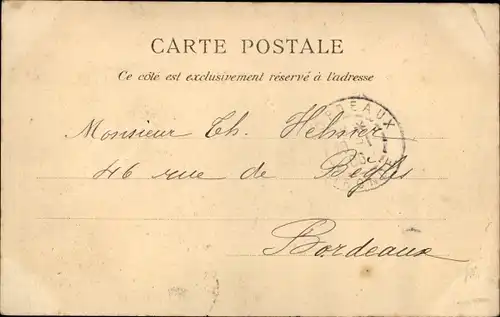 CARTE POSTALE
Ce côté est exclusivement réservé à l'adresse
BORDEAUX
Monsieur Th. Helmer
46 rue de Bègles
Bordeaux